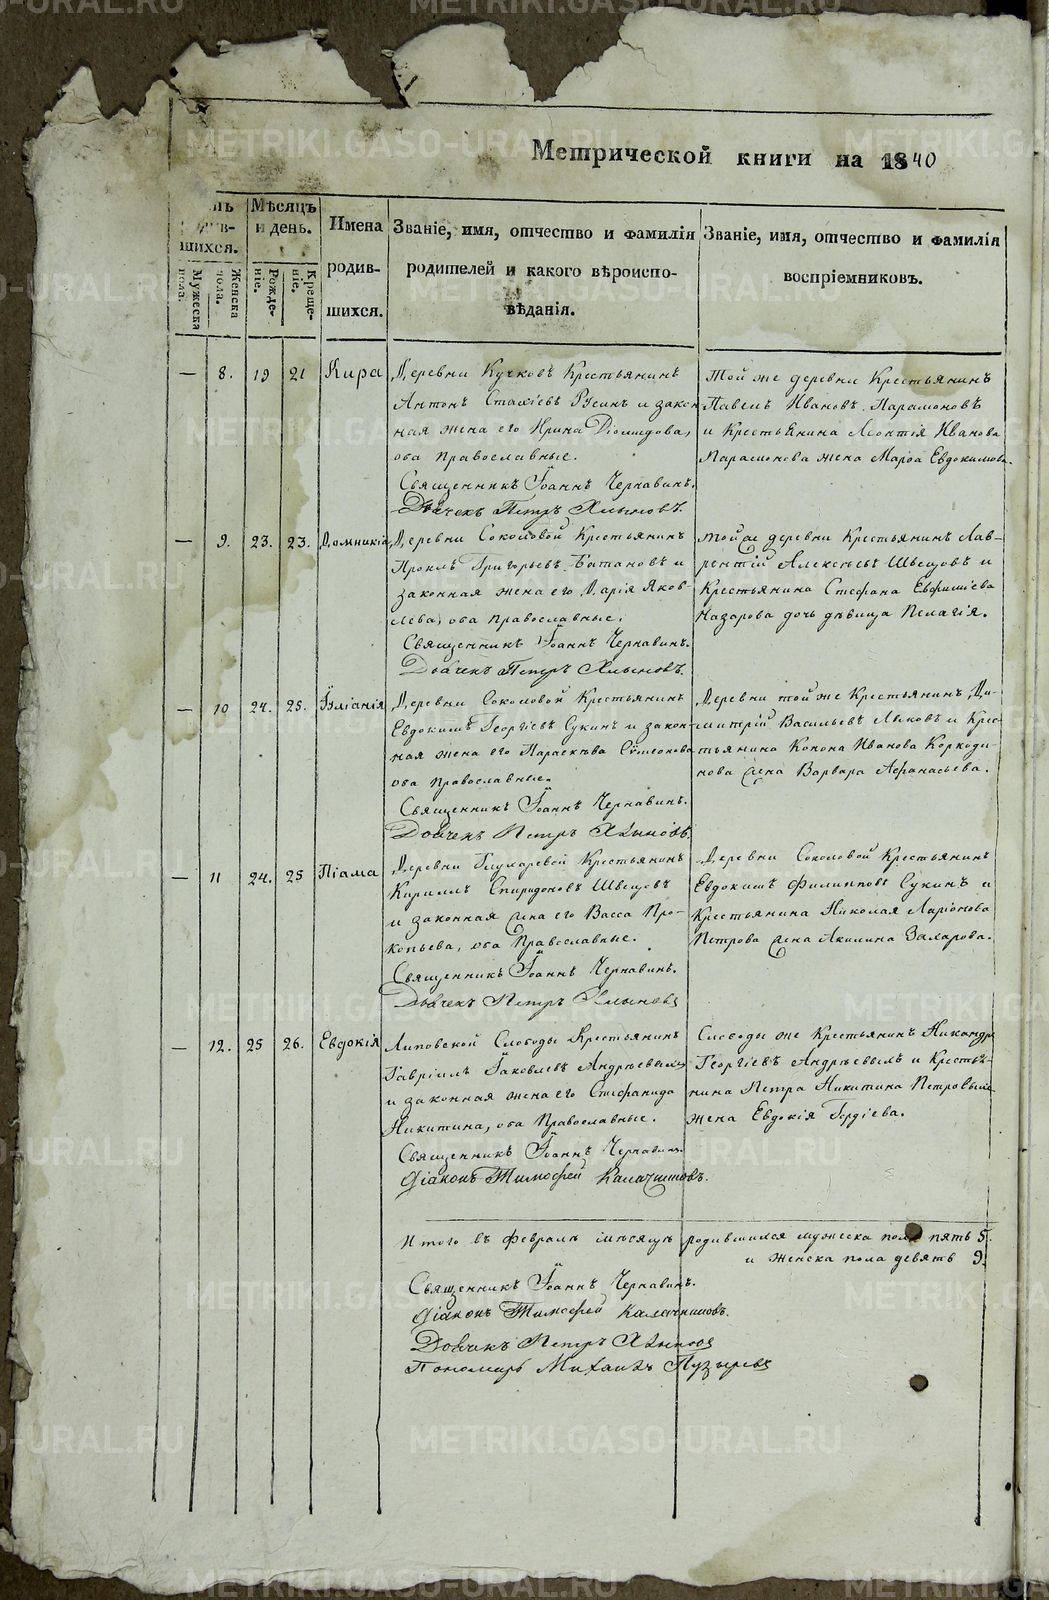 Метрической книги на 1840
Мѣсяцъ и день.
Имена родив-шихся.
Званіе, имя, отчество и фамилія родителей и какого вѣроиспо-вѣданія.
Званіе, имя, отчество и фамилія воспріемниковъ.
шихся.
Мужеска пола.
Женска пола.
Рожде-ніе.
Креще-ніе.
— 8. 19 21 Кира
Деревни Кучковъ Крестьянинъ
Антонъ Стахіевъ Русинъ и закон-
ная жена его Ирина Діомидова,
оба православные.
Священникъ Іоаннъ Чернавинъ.
Дьячекъ Петръ Хлыновъ.
Той же деревни Крестьянинъ
Павелъ Ивановъ Парамоновъ
и Крестьянина Леонтія Иванова
Парамонова жена Марѳа Евдокимова.
— 9. 23. 23. Домникія
Деревни Соколовой Крестьянинъ
Проклъ Григорьевъ Батановъ и
законная жена его Дарія Яков-
лева, оба православные.
Священникъ Іоаннъ Чернавинъ.
Дьячекъ Петръ Хлыновъ.
Той же деревни Крестьянинъ Лав-
рентій Алексѣевъ Швецовъ и
Крестьянина Стефана Евфиміева
Назарова дочь дѣвица Пелагія.
— 10 24. 25. Іуліанія
Деревни Соколовой Крестьянинъ
Евдокимъ Георгіевъ Сукинъ и закон-
ная жена его Параскѣва Сѵмеонова
оба православные.
Священникъ Іоаннъ Чернавинъ.
Дьячекъ Петръ Хлыновъ.
Деревни той же Крестьянинъ Ди-
митрій Васильевъ Лыковъ и Крес-
тьянина Конона Иванова Коркоди-
нова жена Варвара Аѳанасьева.
— 11 24. 25 Піама
Деревни Глухаревой Крестьянинъ
Кириллъ Спиридоновъ Швецовъ
и законная жена его Васса Про-
копьева, оба Православные.
Священникъ Іоаннъ Чернавинъ.
Дьячекъ Петръ Хлыновъ
Деревни Соколовой Крестьянинъ
Евдокимъ Филипповъ Сукинъ и
Крестьянина Николая Ларіонова
Петрова жена Акилина Захарова.
— 12. 25 26. Евдокія
Липовской Слободы Крестьянинъ
Гавріилъ Іаковлевъ Андрѣевыхъ
и законная жена его Стефанида
Никитина, оба Православные.
Священникъ Іоаннъ Чернавинъ.
Діаконъ Тимофей Калачниковъ.
Слободы же Крестьянинъ Никандръ
Георгіевъ Андрѣевыхъ и Крестья-
нина Петра Никитина Петровыхъ
жена Евдокія Гордіева.
Итого въ февралѣ мѣсяцѣ родившихся мужеска пола пять 5.
и женска пола девять 9.
Священникъ Іоаннъ Чернавинъ.
Діаконъ Тимофей Калачниковъ.
Дьячекъ Петръ Хлыновъ
Пономарь Михаилъ Пузыревъ
METRIKI.GASO-URAL.RU